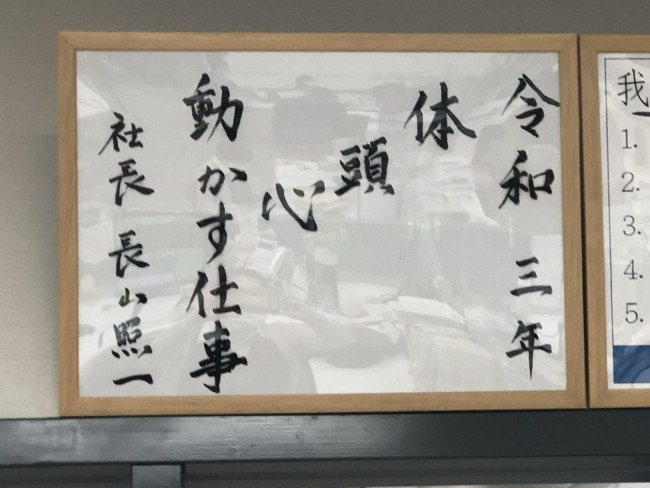 令和三年
体
頭
心
動かす仕事
社長 長山照一
我
1.
2.
3.
4.
5.